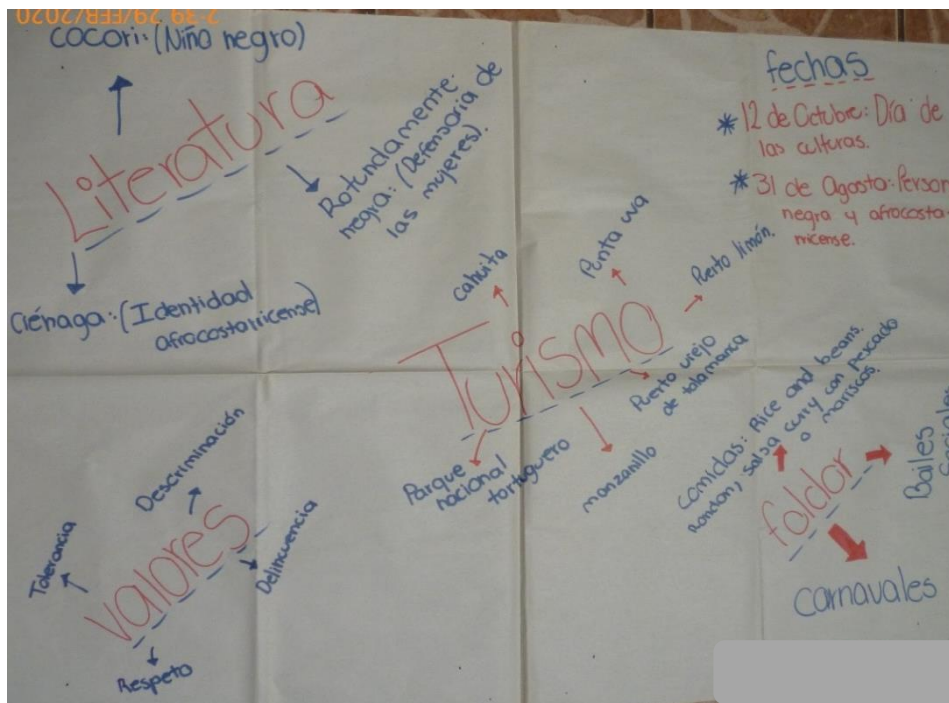 2:39 29/FEB/2020
cocori: (Niño negro)
Literatura
Rotundamente
negra: (Defensoria de
las mujeres).
Ciénaga: (Identidad
afrocostarricense)
fechas
* 12 de Octubre: Día de
las culturas.
* 31 de Agosto: Person
negra y afrocosta
rricense.
Turismo
cahuita
Punta uva
Puerto limón.
Puerto viejo
de talamanca
manzanillo
Parque
nacional
tortuguero
valores
Tolerancia
Descriminación
Delincuencia
Respeto
folclor
Comidas: Rice and beans.
Rondon, salsa curry con pescado
o mariscos.
Bailes
carnavales